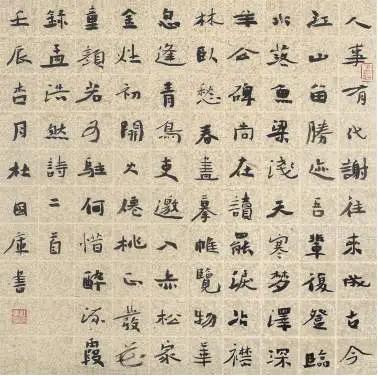 人事有代謝往來成古今
江山留勝迹吾輩復登臨
水落魚梁淺天寒夢澤深
羊公碑尚在讀罷淚沾襟
林臥愁春盡搴帷覽物華
忽逢青鳥使邀入赤松家
金灶初開火僊桃正發花
童顏若可駐何惜醉流霞
錄孟浩然詩二首
壬辰杏月杜國庫書